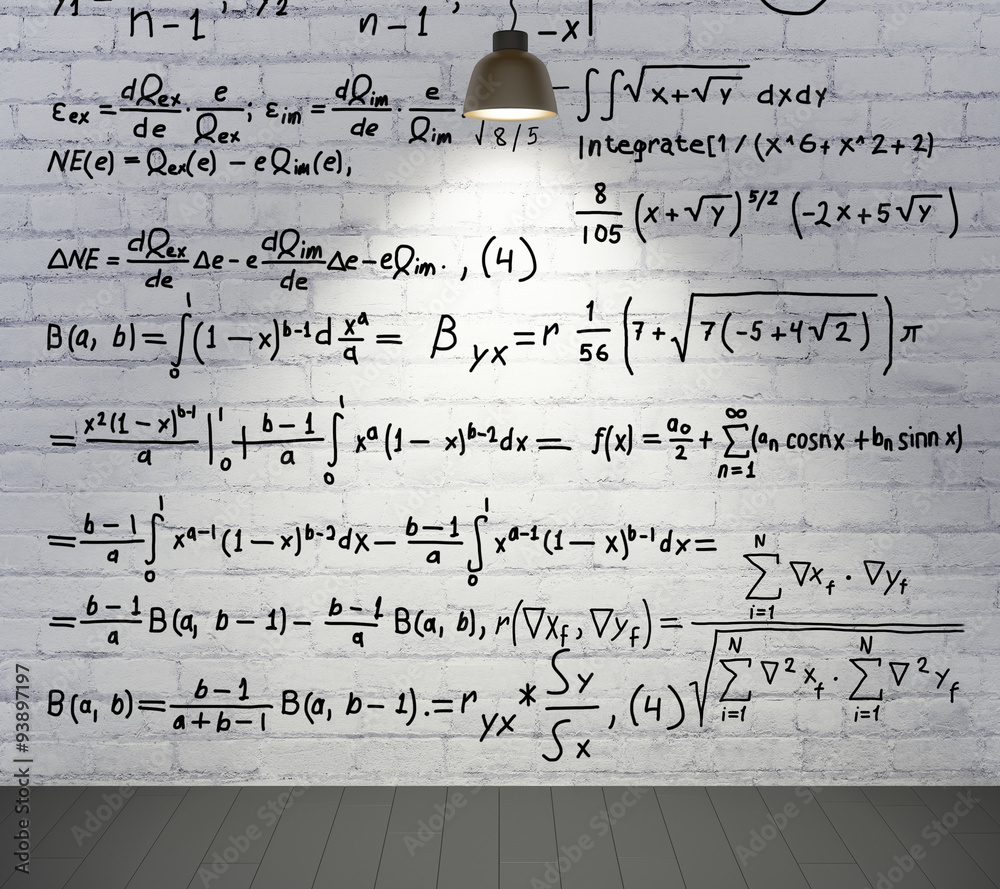 n-1 n-1 -x|
ε_ex = dQ_ex/de · e/Q_ex ; ε_im = dQ_im/de · e/Q_im √8/5 ∫∫√(x+√y) dxdy
NE(e) = Q_ex(e) – eQ_im(e), Integrate[1/(x^6+x^2+2)
8/105 (x+√y)^5/2 (-2x+5√y)
ΔNE = dQ_ex/de Δe – e dQ_im/de Δe – eQ_im. , (4)
B(a, b) = ∫_0^1 (1 – x)^b-1 d x^a/a = β_yx = r 1/56 (7+√(7(-5+4√2))) π
= x²(1 – x)^b-1/a |_0^1 + b – 1/a ∫_0^1 x^a (1 – x)^b-2 dx = f(x) = a_0/2 + ∑_n=1^∞ (a_n cosnx + b_n sinn x)
= b – 1/a ∫_0^1 x^a-1 (1 – x)^b-2 dx – b – 1/a ∫_0^1 x^a-1 (1 – x)^b-1 dx =
= b – 1/a B(a, b – 1) – b – 1/a B(a, b), r(∇x_f, ∇y_f) = ∑_i=1^N ∇x_f · ∇y_f / √(∑_i=1^N ∇² x_f · ∑_i=1^N ∇² y_f)
B(a, b) = b – 1/a + b – 1 B(a, b – 1). = r_yx * Sy/Sx , (4)
Adobe Stock | #93897197